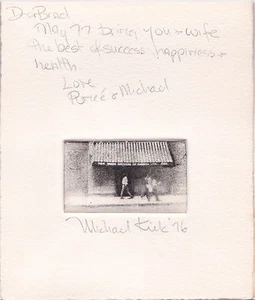 Dear
May 77 bring you + wife
the best of success happiness +
health
Love
& Michael
Michael Kirk '76